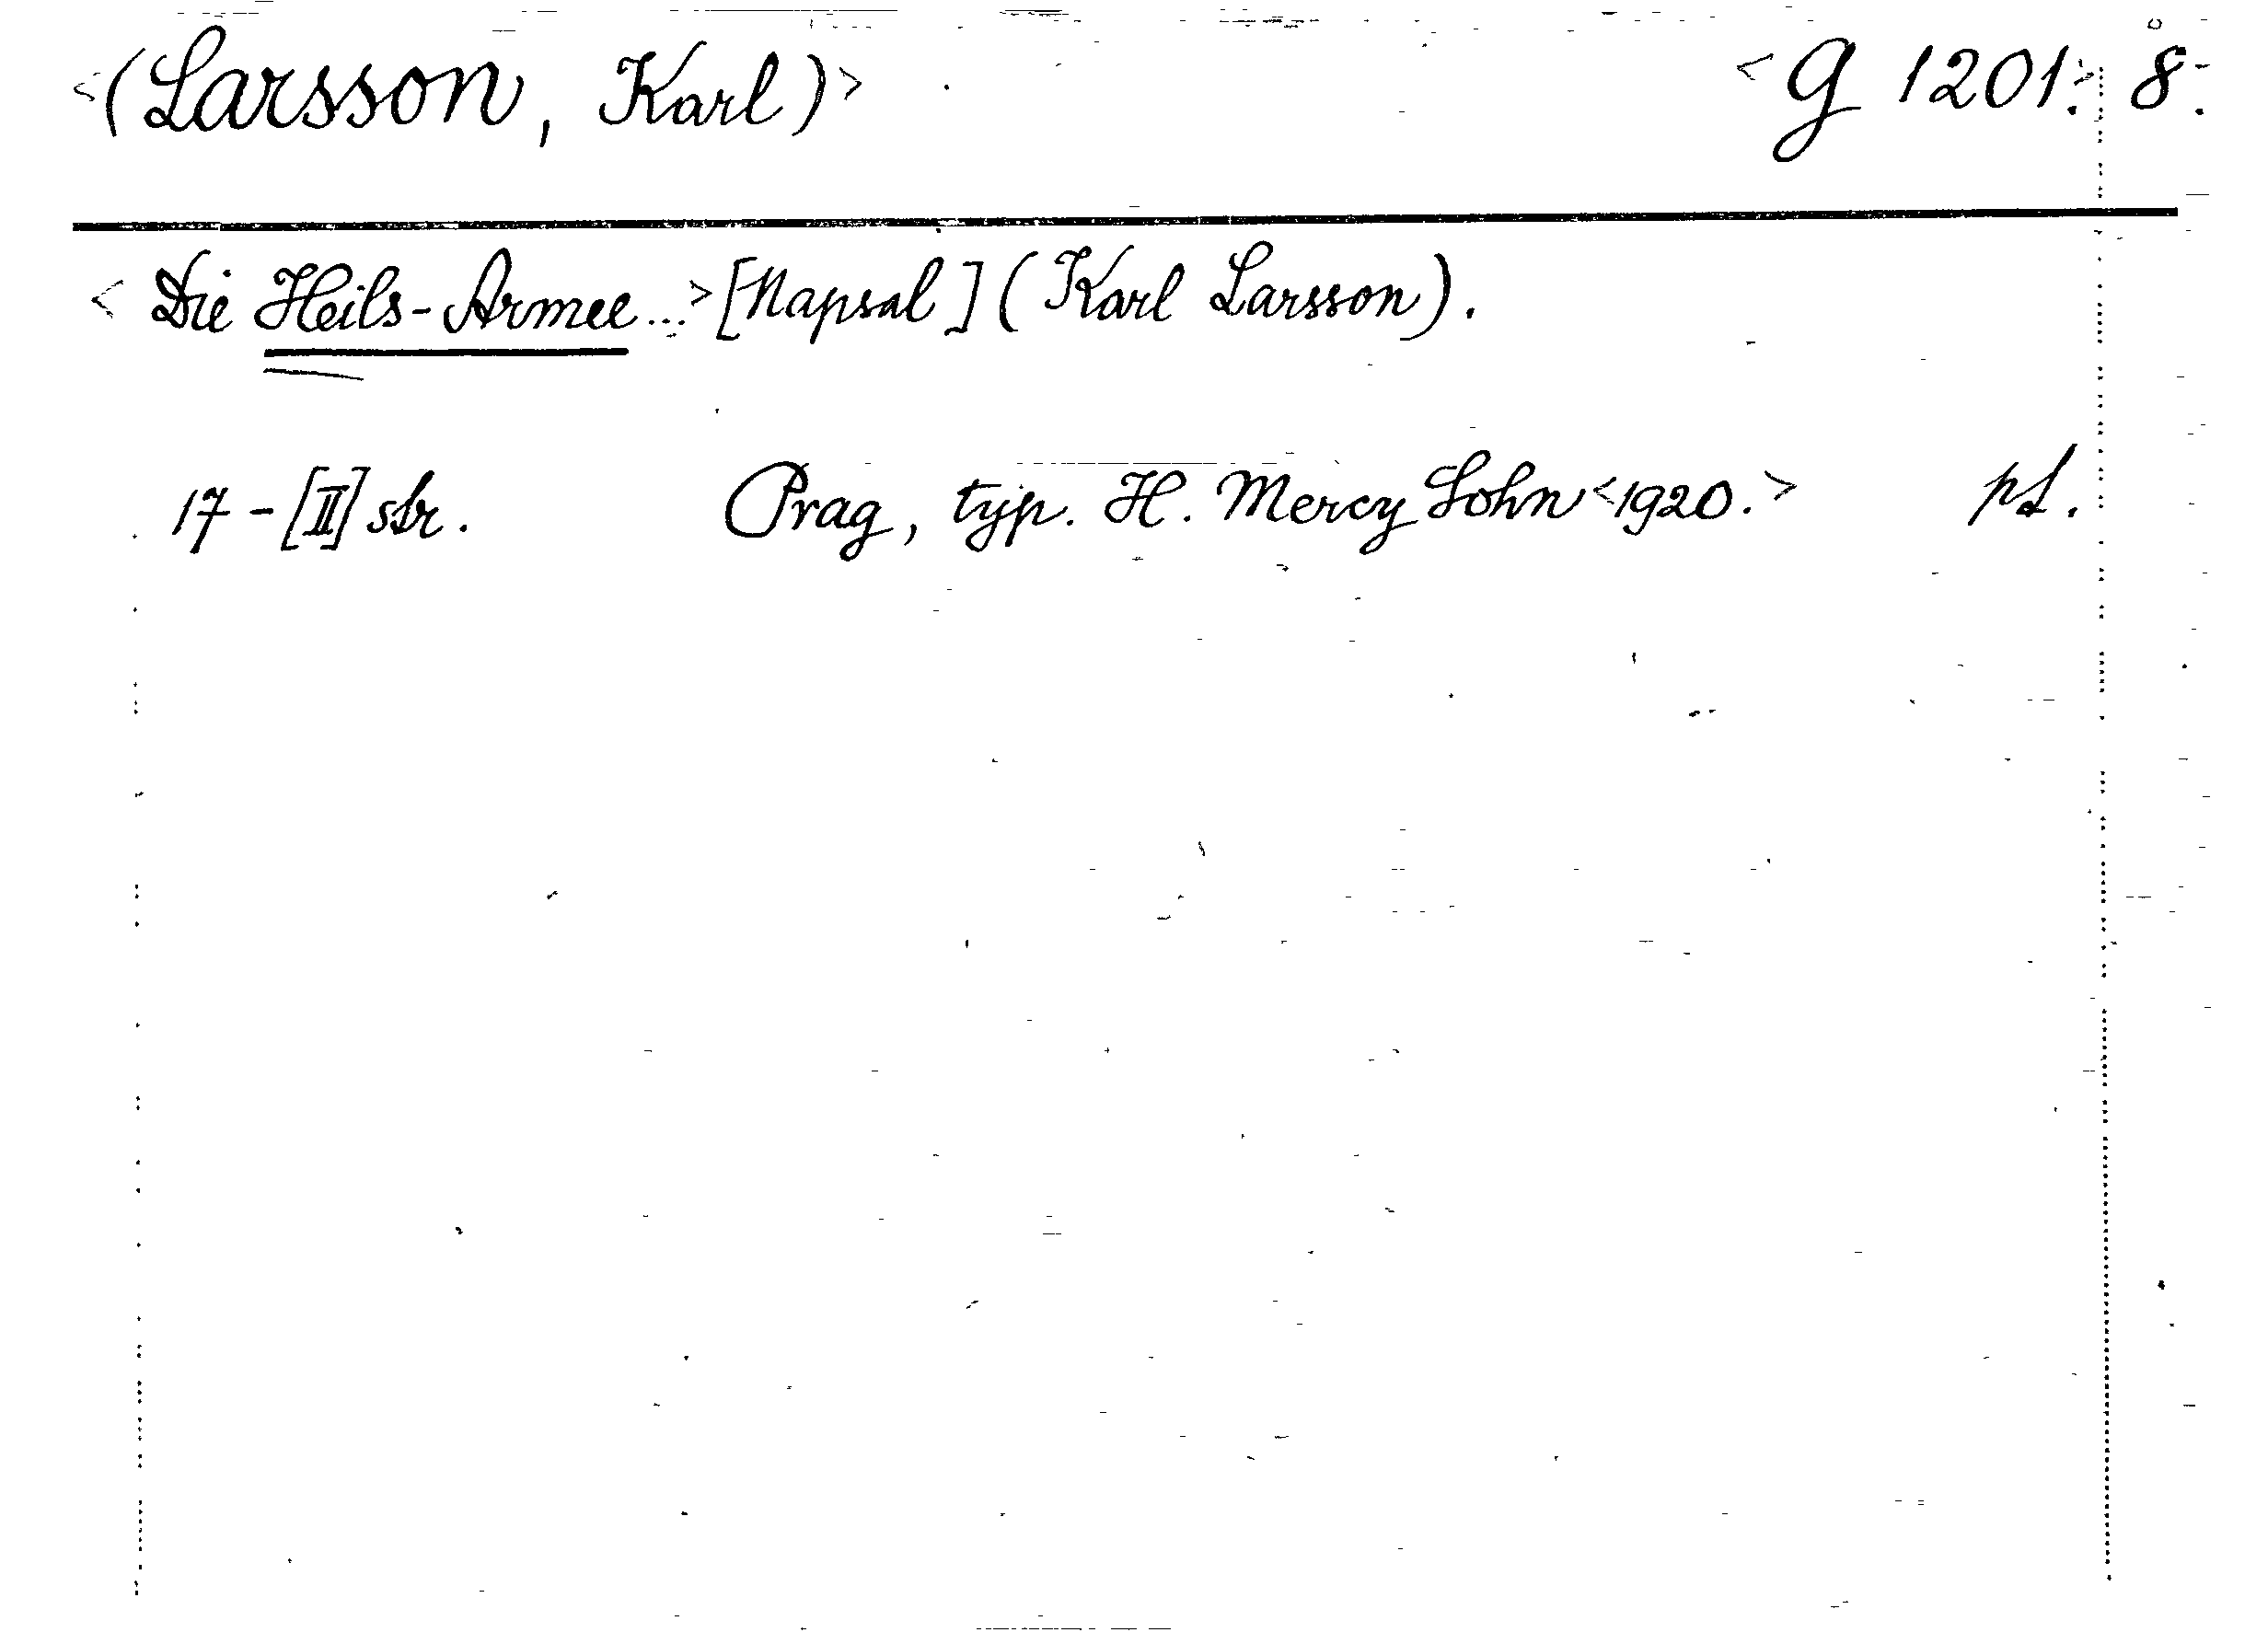 <(Larsson, Karl)> <G 1201.> 8°.
<Die Heils-Armee...> [Napsal] (Karl Larsson).
17-[II] str. Prag, typ. H. Mercy Sohn <1920.> pt.